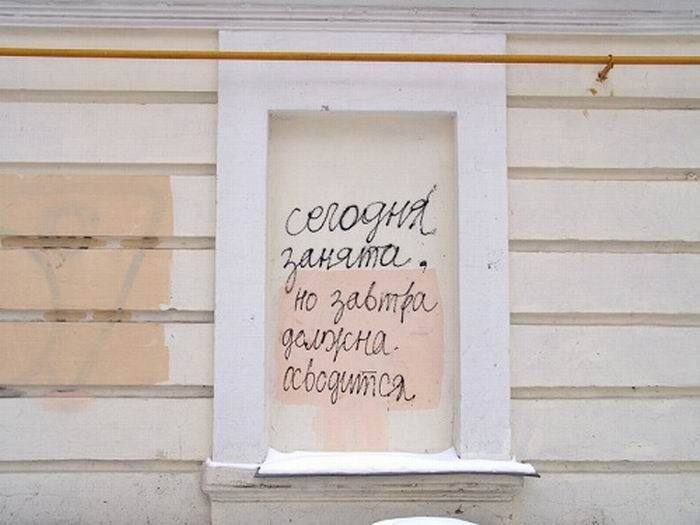 сегодня
занята.
но завтра
должна.
осводится.